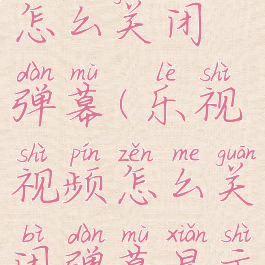 怎么关闭
dàn mù lè shì
弹幕(乐视
shì pín zěn me guān
视频怎么关
bì dàn mù xiǎn shì
闭弹幕显示